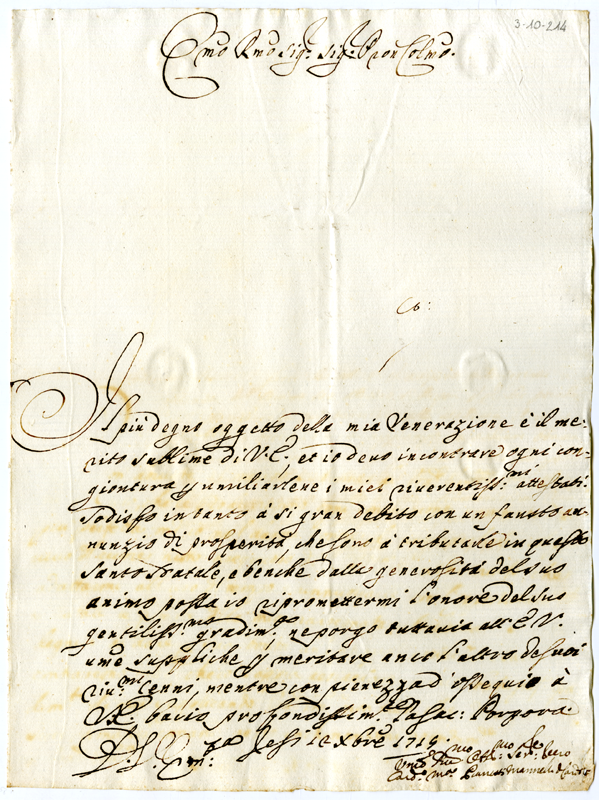 3-10-214
Emo Rmo Sigr. Sigr. Pron Colmo.
Co:
Il più degno oggetto della mia Venerazione è il me-
rito sublime di V.E., et io devo incontrare ogni con-
giontura p umiliarlene i miei riverentissmi attestati.
Sodisfo intanto à si gran debito con un fausto an-
nunzio di prosperità, che sono à tributarle in questo
Santo Natale, e benche dalla generosità del suo
animo possa io ripromettermi l'onore del suo
gentilissmo gradimto, ne porgo tuttavia all'E.V.
ume suppliche p meritare anco l'altro de suoi
rivmi cenni, mentre con pienezza d'ossequio à
V.E. bacio profondissimte la sac: Porpora.
D.V.Emza Jesi 12 Xbre 1714
Card.